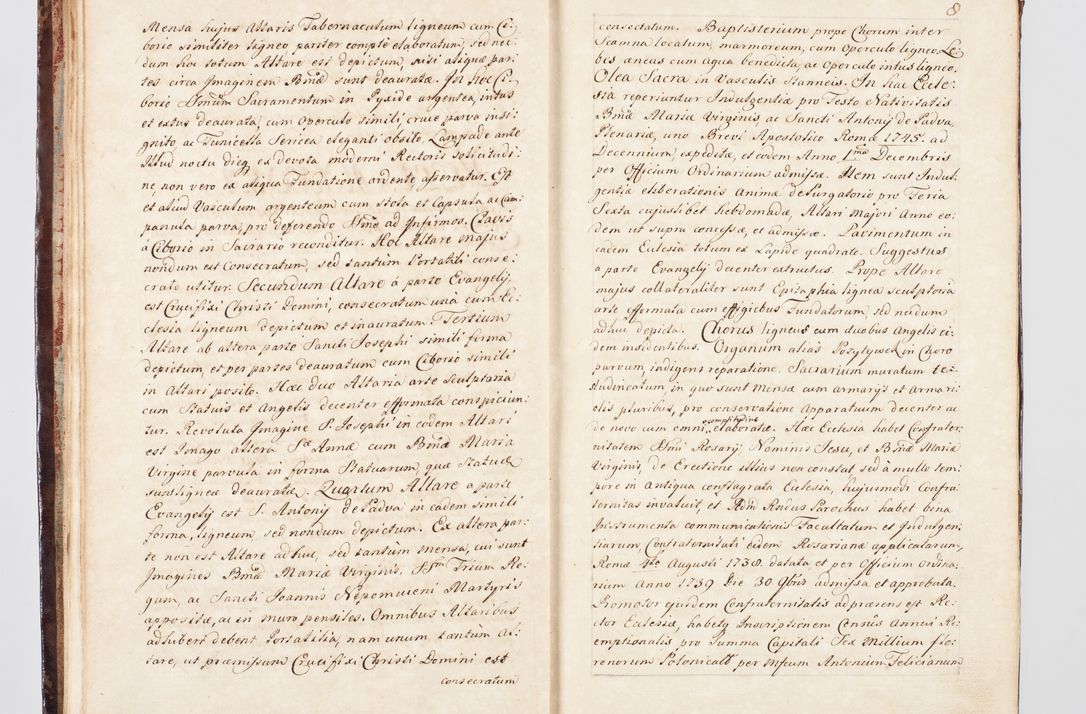 Mensa hujus Altaris Tabernaculum ligneum cum Ci:
borio similiter ligneo pariter compte elaboratum, sed nec:
dum hoc totum Altare est depictum, nisi aliquæ par:
tes circa Imaginem Bmæ sunt deauratæ. In hoc Ci:
borio Smum Sacramentum in Pyxide argentea, intus
et extus deaurata, cum operculo simili, cruce parva insi:
gnito, ac Tunicella Sericea eleganti obsito, Lampade ante
illud noctu dieq, ex devota moderni Rectoris solicitudi:
ne, non vero ex aliqua Fundatione ardente, asservatur. Est
et aliud Vasculum argenteum cum stola et Capsula ac Cam:
panula parva, pro deferendo Smo ad Infirmos. Clavis
á Ciborio in Sacrario reconditur. Hoc Altare majus
nondum est Consecratum, sed tantùm Portatili conse:
crato utitur. Secundum Altare á parte Evangelij,
est Crucifixi Christi Domini, consecratum unà cum Ec:
clesia ligneum depictum et inauratum. Tertium
Altare ab altera parte Sancti Josephi simili forma
depictum, et per partes deauratum cum Ciborio simili
in Altari posito. Hæc duo Altaria arte Sculptoria
cum Statuis et Angelis decenter efformata conspiciun:
tur. Revoluta Imagine S. Josephi in eodem Altari
est Imago altera Sæ Annæ cum Bmæ Maria
Virgine parvula in forma Statuarum, quæ Statuæ
sunt ligneæ deauratæ. Quartum Altare a parte
Evangelij est S. Antonij de Padva in eadem simili
forma, ligneum sed nondum depictum. Ex altera par:
te non est Altare adhuc, sed tantùm mensa, cui sunt
Imagines Bmæ Mariæ Virginis, SSm Trium Re:
gum, ac Sancti Joannis Nepomuceni Martyris
apposita, ac in muro pensiles. Omnibus Altaribus
adhuberi debent Portatilia, nam unum tantùm Al:
tare, ut præmissum Crucifixi Christi Domini est
consecratum
8
consectatum. Baptisterium prope Chorum inter
Scamna locatum, marmoreum, cum Operculo ligneo. Le:
bes æneus cum aqua benedicta, ac Operculo intus ligneo.
Olea Sacra in Vasculis stanneis. In hac Eccle:
sia reperiuntur Indulgentiæ pro Festo Nativitatis
Bmæ Mariæ Virginis, ac Sancti Antonij de Padva
Plenariæ, uno Brevi Apostolico Romæ 1745. ad
Decennium expeditæ, et eodem Anno, 1ma Decembris
per Officium Ordinarium admissæ. Item sunt Indul:
gentiæ eliberationis Animæ de Purgatorio pro Feria
Sexta cujuslibet hebdomadæ, Altari Majori Anno eo:
dem ut supra concessæ, et admissæ. Pavimentum in
eadem Ecclesia totum ex Lapide quadrato. Suggestus
a parte Evangelij decenter extructus. Prope Altare
majus collateraliter sunt Epitaphia lignea sculptoria
arte efformata cum effigiebus Fundatorum, sed necdum
adhuc depicta. Chorus ligneus cum duobus Angelis ei:
dem insidentibus. Organum alias Pozytywek in Choro
parvum, indigens reparatione. Sacrarium muratum tes:
tudineatum in quo sunt Mensæ cum armarijs et Armari:
olis pluribus, pro conservatione Apparatuum decenter ac
de novo cum omni complitudine elaboratæ. Hæc Ecclesia habet Confrater:
nitatem SSmi Rosarij Nominis Jesu, et Bmæ Mariæ
Virginis, de Erectione illius non constat sed à multo tem:
pore in Antiqua conflagrata Ecclesia, hujusmodi Confra:
ternitas invaluit, et Adm Rndus Parochus habet bina
Instrumenta communicationis Facultatum et Indulgen:
tiarum, Confraternitati eidem Rosarianæ applicatarum,
Romæ 4ta Augusti 1738. datata et per Officium Ordina:
rium Anno 1739 Die 30 9bris admissa et approbata.
Promotor ejusdem Confraternitatis ad præsens est Re:
ctor Ecclesiæ, habetq Inscriptionem Census Annui Re:
emptionalis pro Summa Capitali Sex Millium flo:
renorum Polonicall per Mfcum Antonium Felicianum